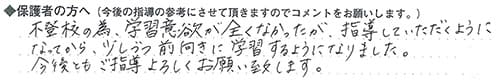 ◆保護者の方へ(今後の指導の参考にさせて頂きますのでコメントをお願いします。)
不登校の為、学習意欲が全くなかったが、指導していただくように
なってから、少しずつ前向きに学習するようになりました。
今後ともご指導よろしくお願い致します。